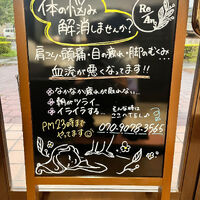 体の悩み
解消しませんか?
Re An
肩こり・頭痛・目の疲れ・脚のむくみ…
血流が悪くなってます!!
なかなか疲れが取れない…
朝がツライ
イライラする…
そんな時は
ココへTEL♪
070-9078-3565
PM23時まで
やってます